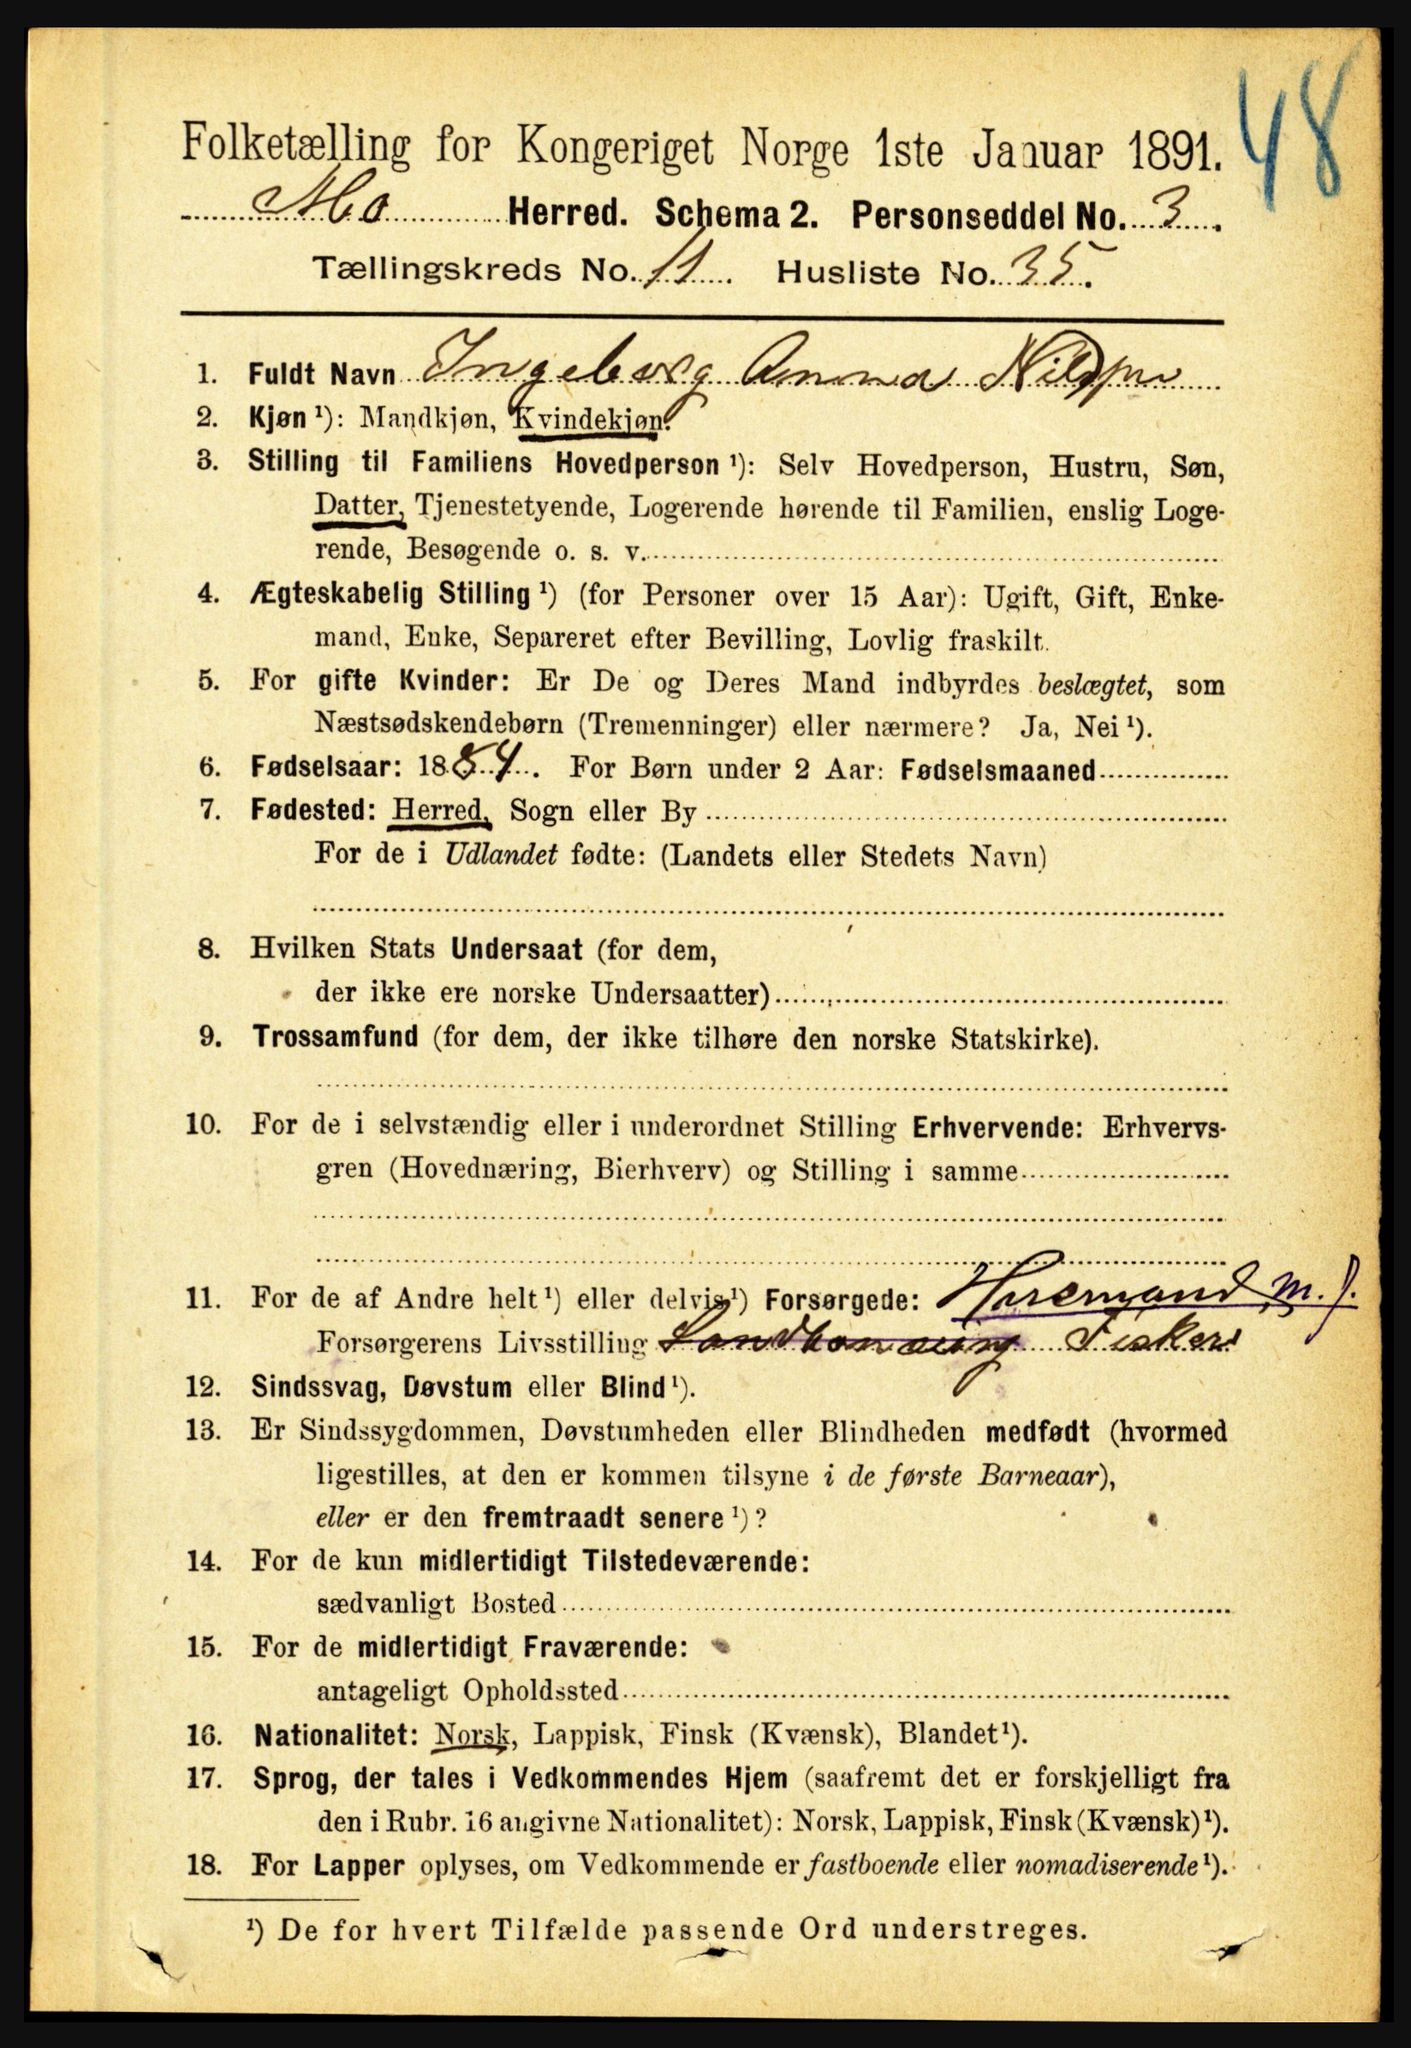 48
Folketælling for Kongeriget Norge 1ste Januar 1891.
Mo Herred. Schema 2. Personseddel No. 3.
Tællingskreds No. 11. Husliste No. 35.
1. Fuldt Navn Ingeborg Anna
2. Kjøn ¹): Mandkjøn, Kvindekjøn.
3. Stilling til Familiens Hovedperson ¹): Selv Hovedperson, Hustru, Søn,
Datter, Tjenestetyende, Logerende hørende til Familien, enslig Loge-
rende, Besøgende o. s. v.
4. Ægteskabelig Stilling ¹) (for Personer over 15 Aar): Ugift, Gift, Enke-
mand, Enke, Separeret efter Bevilling, Lovlig fraskilt.
5. For gifte Kvinder: Er De og Deres Mand indbyrdes beslægtet, som
Næstsødskendebørn (Tremenninger) eller nærmere? Ja, Nei ¹).
6. Fødselsaar: 1884. For Børn under 2 Aar: Fødselsmaaned
7. Fødested: Herred, Sogn eller By
For de i Udlandet fødte: (Landets eller Stedets Navn)
8. Hvilken Stats Undersaat (for dem,
der ikke ere norske Undersaatter)
9. Trossamfund (for dem, der ikke tilhøre den norske Statskirke).
10. For de i selvstændig eller i underordnet Stilling Erhvervende: Erhvervs-
gren (Hovednæring, Bierhverv) og Stilling i samme
11. For de af Andre helt ¹) eller delvis ¹) Forsørgede: Husmand m. J.
Forsørgerens Livsstilling Fisker
12. Sindssvag, Døvstum eller Blind ¹).
13. Er Sindssygdommen, Døvstumheden eller Blindheden medfødt (hvormed
ligestilles, at den er kommen tilsyne i de første Barneaar),
eller er den fremtraadt senere ¹)?
14. For de kun midlertidigt Tilstedeværende:
sædvanligt Bosted
15. For de midlertidigt Fraværende:
antageligt Opholdssted
16. Nationalitet: Norsk, Lappisk, Finsk (Kvænsk), Blandet ¹).
17. Sprog, der tales i Vedkommendes Hjem (saafremt det er forskjelligt fra
den i Rubr. 16 angivne Nationalitet): Norsk, Lappisk, Finsk (Kvænsk) ¹).
18. For Lapper oplyses, om Vedkommende er fastboende eller nomadiserende ¹).
¹) De for hvert Tilfælde passende Ord understreges.